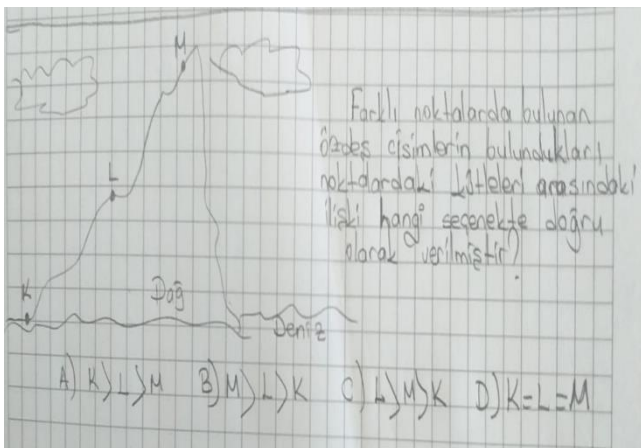 M
Farklı noktalarda bulunan
özdeş cisimlerin bulundukları
L
noktalardaki kütleleri arasındaki
ilişki hangi seçenekte doğru
olarak verilmiştir?
K
Dağ
Deniz
A) K>L>M B) M>L>K C) L>M>K D) K=L=M